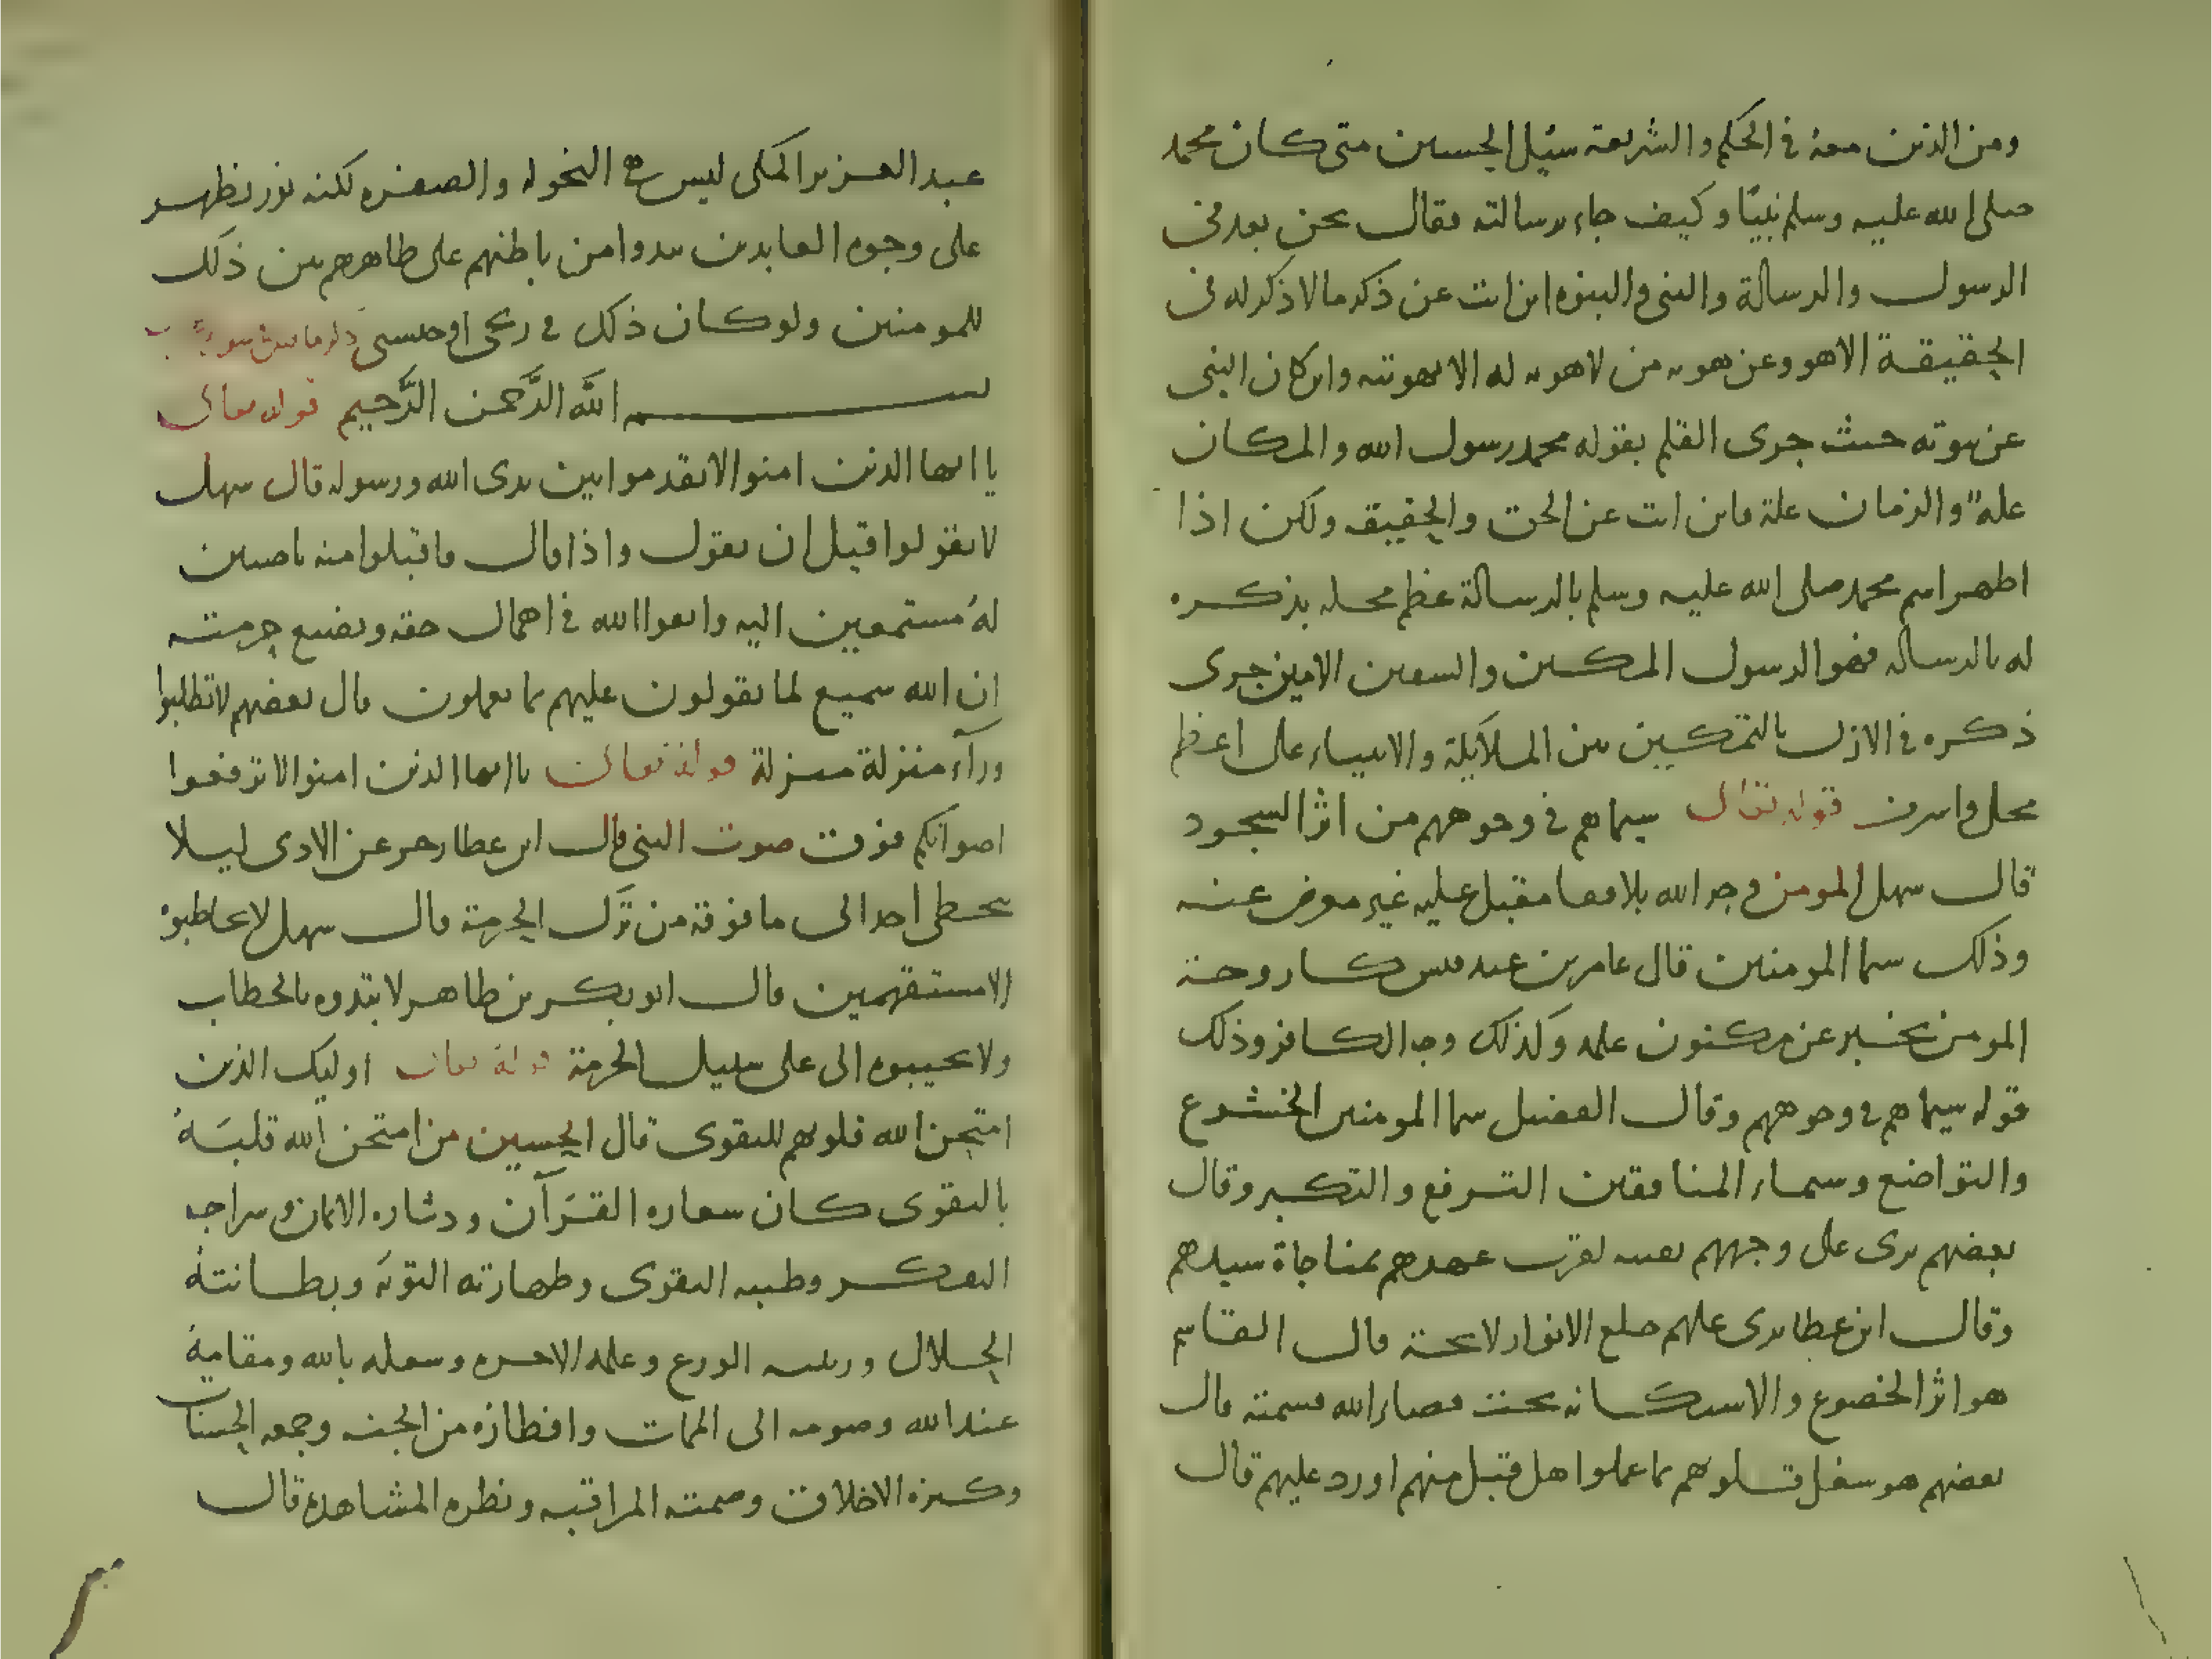 ومن الذين معه في الحكم والشريعة سئل الحسين متى كان محمد
صلى الله عليه وسلم نبيًا وكيف جاء برسالته فقال نحن بعد في
الرسول والرسالة والنبي والنبوه اين انت عن ذكر ما لا ذكر له في
الحقيقة الا هو وعن هويه من لا هويه له الا بهويته واين كان النبي
عن نبوته حيث جرى القلم بقوله محمد رسول الله والمكان
علة والزمان علة فاين انت عن الحق والحقيقه ولكن اذا
اظهر اسم محمد صلى الله عليه وسلم بالرسالة عظم محله بذكره
له بالرساله فهو الرسول المكين والسفير الامين جرى
ذكره في الازل بالتمكين بين الملائكة والانبياء على اعظم
محل واشرف قوله تعالى سيماهم في وجوههم من اثر السجود
قال سهل المومن وجه الله بلا قفا مقبل عليه غير معرض عنه
وذلك سيما المومنين قال عامر بن عبد قيس كاد وجه
المومن يخبر عن مكنون عمله وكذلك وجه الكافر وذلك
قوله سيماهم في وجوههم وقال الفضيل سيما المومنين الخشوع
والتواضع وسيماء المنافقين الترفع والتكبر وقال
بعضهم يرى على وجههم هيبه لقرب عهدهم بمناجاة سيدهم
وقال ابن عطا يرى عليهم خلع الانوار لايحة قال القاسم
هو اثر الخضوع والاستكانه تحت قضاء الله قسمته قال
بعضهم هو شغل قلوبهم بما عملوا هل قبل منهم او رد عليهم قال
عبد العزيز المكي ليس هي النحوله والصفره لكنه نور يظهر
على وجوه العابدين يبدوا من باطنهم على ظاهرهم يبين ذلك
للمومنين ولو كان ذلك في زنجي او حبشي
بسم الله الرَّحمن الرَّحيم قوله تعالى
يا ايها الذين امنوا لا تقدموا بين يدي الله ورسوله قال سهل
لا تقولوا قبل ان يقول واذا قال فاقبلوا منه ناصتين
لهُ مستمعين اليه واتقوا الله في اهمال حقه وتضيع حرمته
ان الله سميع لما تقولون عليهم بما تعملون قال بعضهم لا تطلبوا
ورآء منزلة منزلة قوله تعالى يا ايها الذين امنوا لا ترفعوا
اصواتكم فوق صوت النبي قال ابن عطا زجر عن الادنى ليلا
يتخطى احد الى ما فوقه من ترك الحرمة قال سهل لا تخاطبوه
الا مستفهمين قال ابو بكر بن طاهر لا تبدوه بالخطاب
ولا تجيبوه الى على سبيل الحرمة قوله تعالى اوليك الذين
امتحن الله قلوبهم للتقوى قال الحسين من امتحن الله قلبَهُ
بالتقوى كان شعاره القرآن ودثاره الايمان وسراجه
التفكر وطيبه التقوى وطهارته التوبَة وبطانتهُ
الحلال وزينته الورع وعلمه الاخره وشغله بالله ومقامهُ
عند الله وصومه الى الممات وافطاره من الجنه وجمعه الحسنات
وكنزه الاخلاق وصمته المراقبه ونظره المشاهده قال